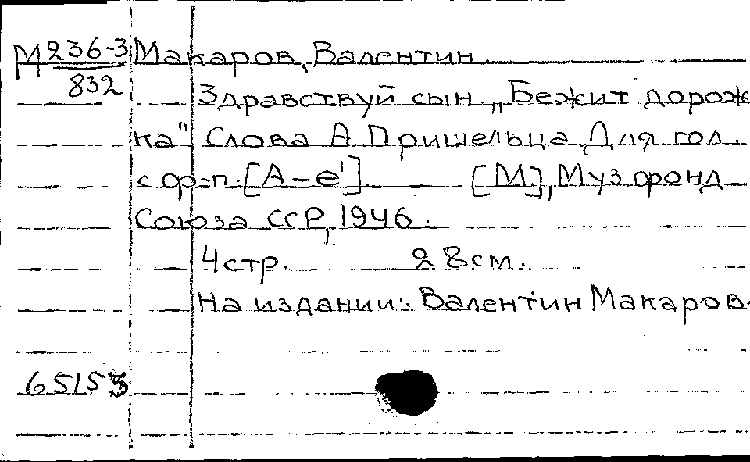 М 236-3 Макаров, Валентин
832 Здравствуй сын „Бежит дорож
ка" Слова А Пришельца Для гол.
с ф-п. [А-е¹] [М], Музфонд
Союза ССР, 1946.
4 стр. 28 см.
На издании: Валентин Макаров
65153